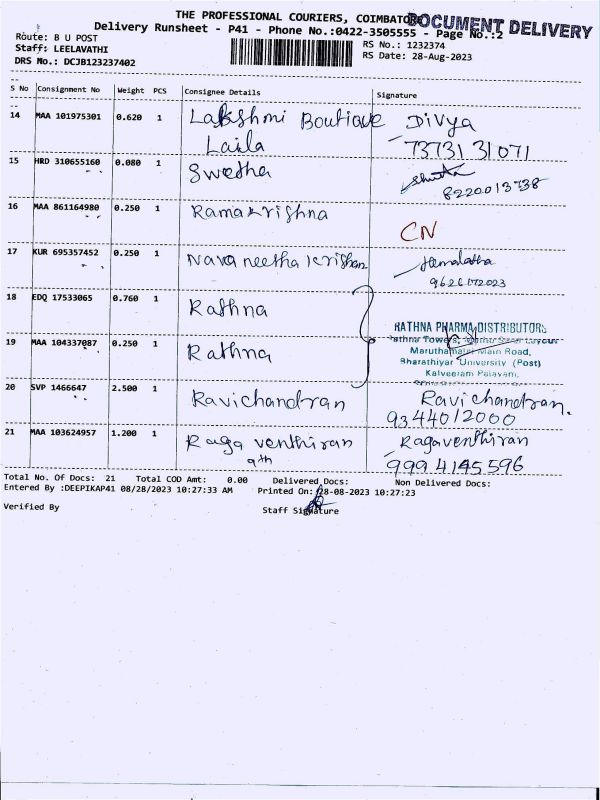 THE PROFESSIONAL COURIERS, COIMBATORE
DOCUMENT DELIVERY
Delivery Runsheet - P41 - Phone No.:0422-3505555 - Page No.:2
Route: B U POST
Staff: LEELAVATHI
DRS No.: DCJB123237402
RS No.: 1232374
RS Date: 28-Aug-2023
S No Consignment No Weight PCS Consignee Details Signature
14 MAA 101975301 0.620 1 Lakshmi Boutique Divya
Laila 73731 31071
15 HRD 310655160 0.080 1 Swetha
8220013738
16 MAA 861164980 0.250 1 Ramakrishna
CN
17 KUR 695357452 0.250 1 Navaneetha krishnan Hemalatha
9626172023
18 EDQ 17533065 0.760 1 Rathna
RATHNA PHARMA DISTRIBUTORS
19 MAA 104337087 0.250 1 Rathna
Rathna Towers,
Maruthamalai Main Road,
Bharathiyar University (Post)
Kalveeram Palayam,
20 SVP 1466647 2.500 1 Ravichandran Ravichandran.
9344012000
21 MAA 103624957 1.200 1 Ragaventhiran Ragaventhiran
9th 9994145596
Total No. Of Docs: 21 Total COD Amt: 0.00 Delivered Docs: Non Delivered Docs:
Entered By :DEEPIKAP41 08/28/2023 10:27:33 AM Printed On: 28-08-2023 10:27:23
Verified By Staff Signature